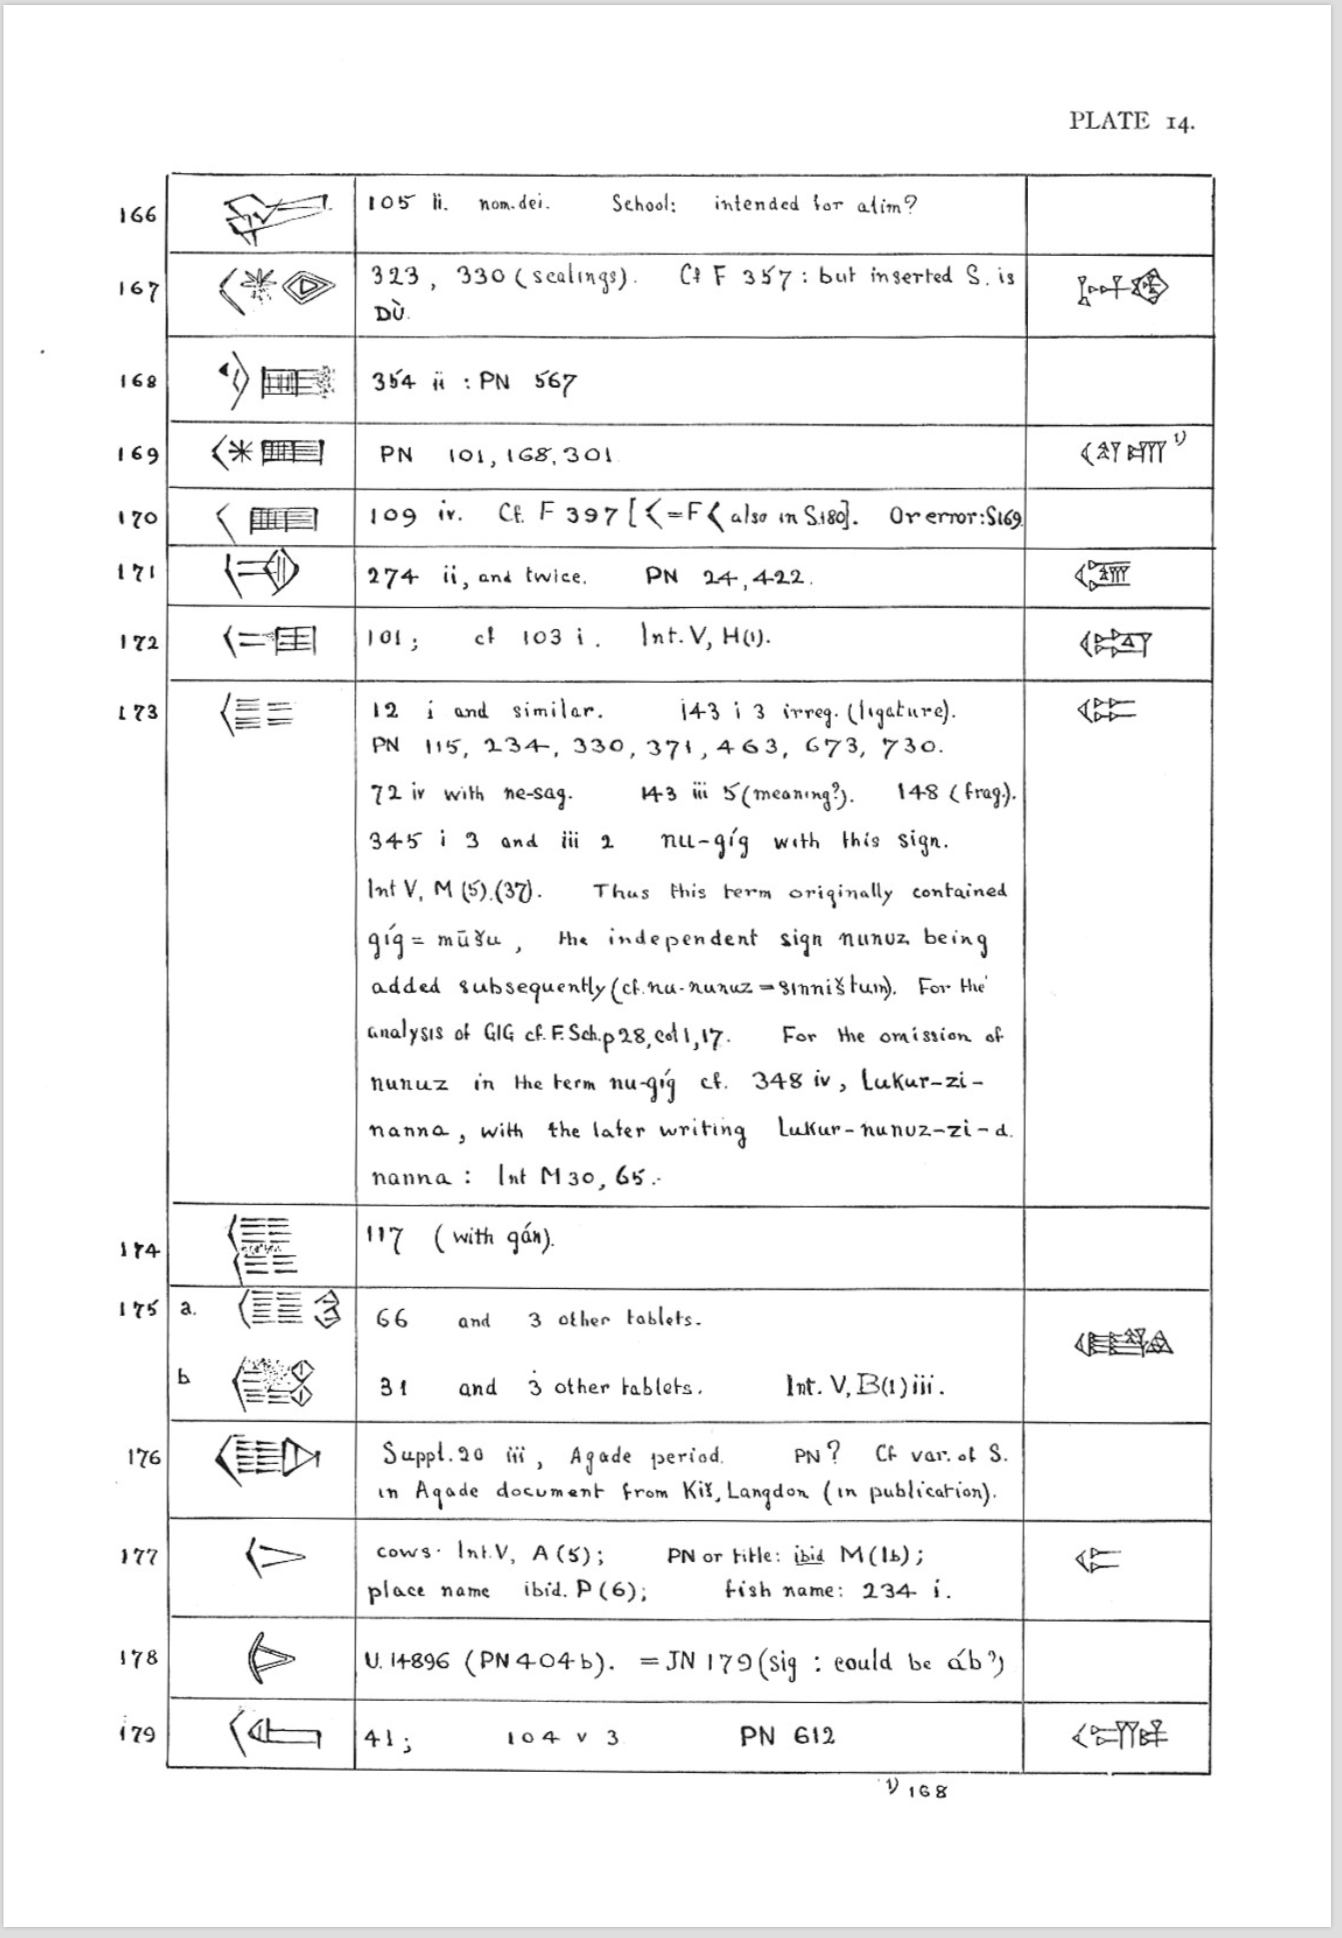 PLATE 14.
166 105 ii. nom. dei. School: intended for alim?
167 323, 330 (sealings). Cf F 357: but inserted S. is
DÙ.
168 354 ii : PN 567
169 PN 101, 168, 301 1)
170 109 iv. Cf. F 397 [ = F also in S.180]. Or error: S169
171 274 ii, and twice. PN 24, 422.
172 101; cf 103 i. Int. V, H(1).
173 12 i and similar. 143 i 3 irreg. (ligature).
PN 115, 234, 330, 371, 463, 673, 730.
72 iv with ne-sag. 143 iii 5 (meaning?). 148 (frag.).
345 i 3 and iii 2 nu-gíg with this sign.
Int V, M (5).(37). Thus this term originally contained
gíg = mūšu, the independent sign nunuz being
added subsequently (cf. nu-nunuz = sinništum). For the
analysis of GIG cf. F. Sch. p 28, col 1, 17. For the omission of
nunuz in the term nu-gíg cf. 348 iv, Lukur-zi-
nanna, with the later writing Lukur-nunuz-zi-d.
nanna: Int M 30, 65.
174 117 (with gán).
175 a. 66 and 3 other tablets.
b 31 and 3 other tablets. Int. V, B(1) iii.
176 Suppl. 20 iii, Agade period. PN? Cf var. of S.
in Agade document from Kiš, Langdon (in publication).
177 cows. Int. V, A (5); PN or title: ibid M(16);
place name ibid. P (6); fish name: 234 i.
178 U. 14896 (PN 404b). = JN 179 (sig : could be áb?)
179 41; 104 v 3 PN 612
1) 168